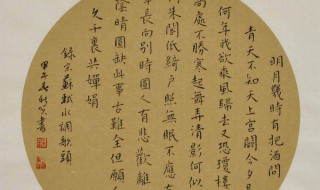 明月幾時有把酒問
青天不知天上宮闕今夕是
何年我欲乘風歸去又恐瓊樓
高處不勝寒起舞弄清影何似
朱閣低綺戶照無眠不應有
長向別時圓人有悲歡離
陰晴圓缺此事古難全但願
久千裏共嬋娟
錄宋蘇軾水調歌頭
甲午書